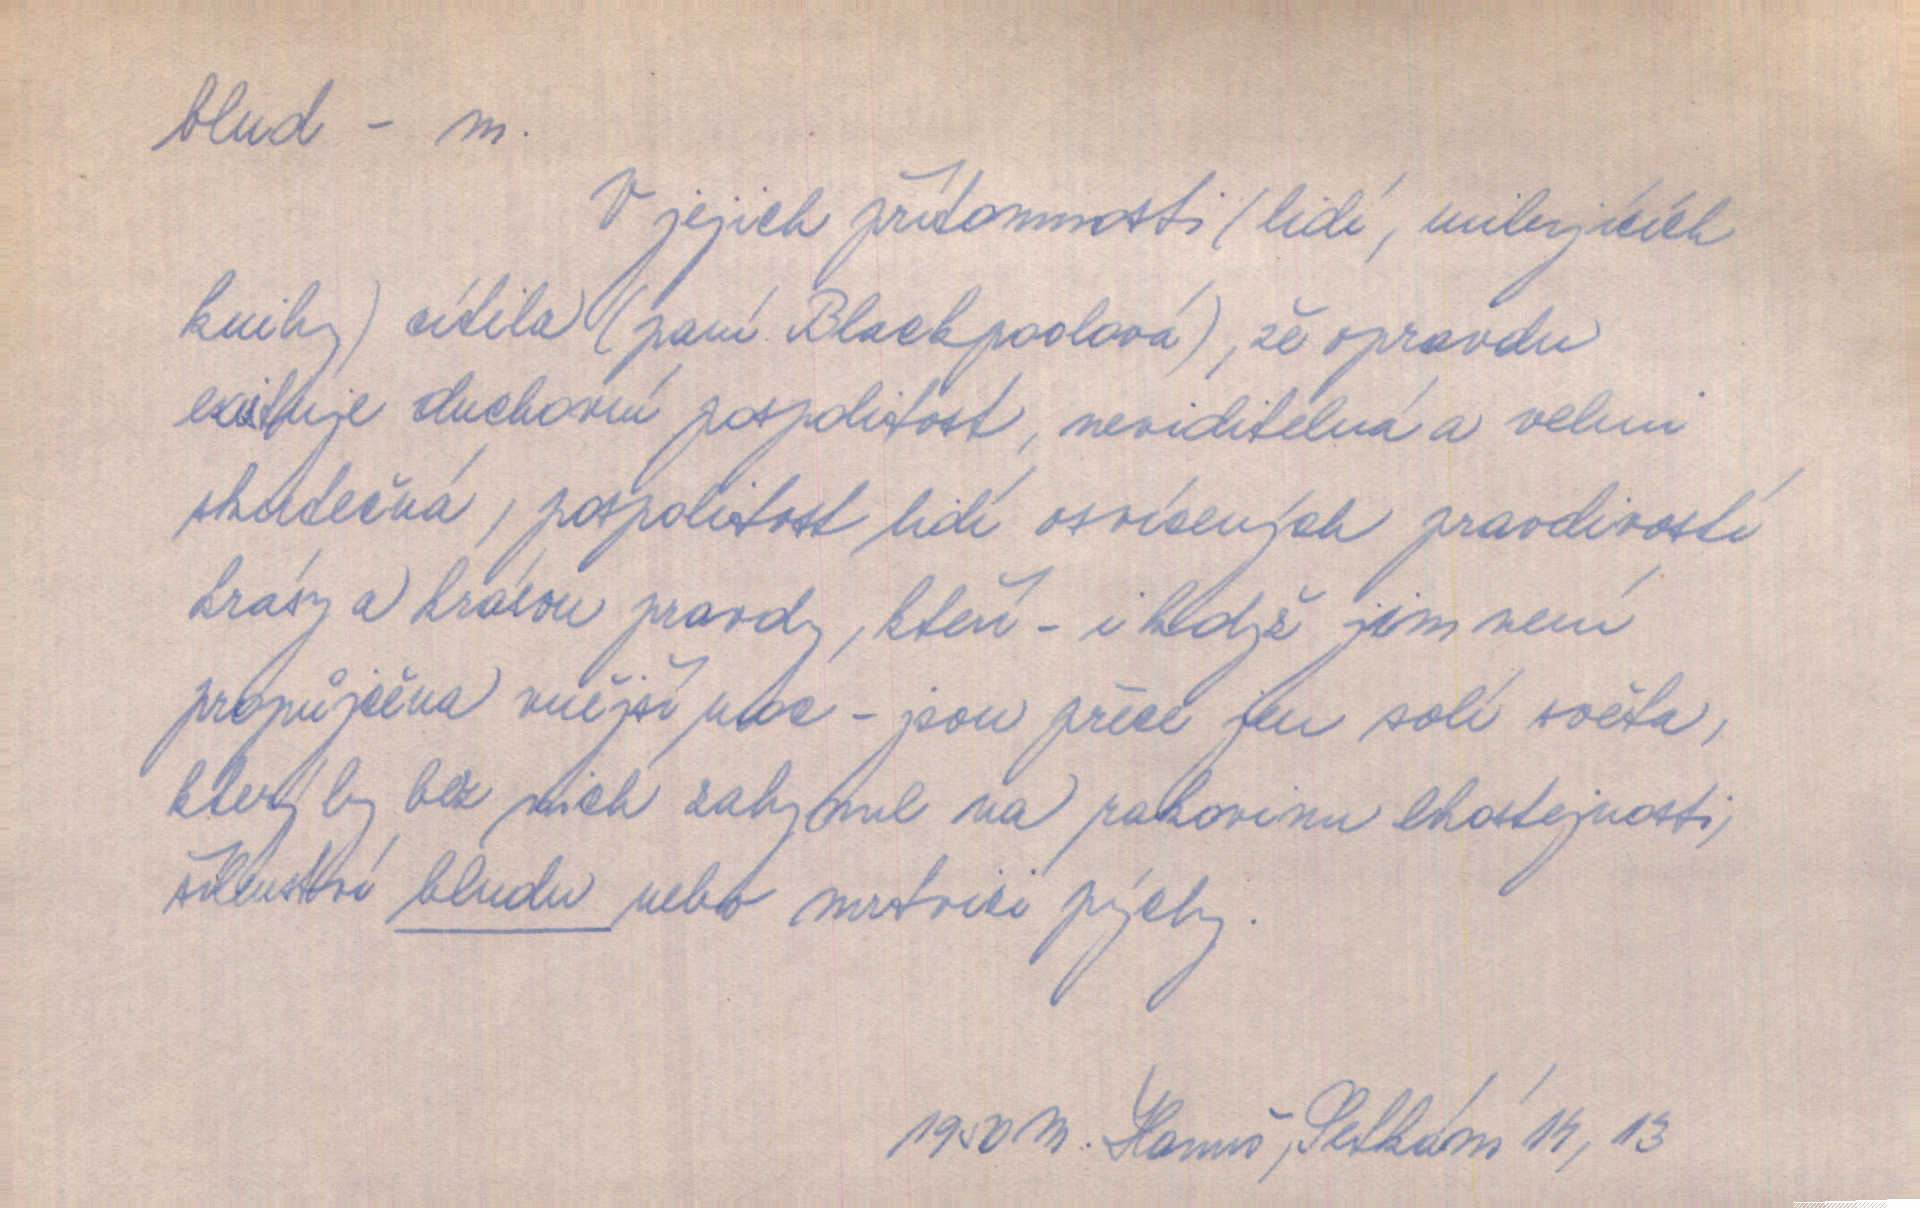 blud - m.
V jejich přítomnosti (lidí, milujících
knihy) cítila (paní Blackpoolová), že opravdu
existuje duchovní pospolitost, neviditelná a velmi
skutečná, pospolitost lidí osvícených pravdivostí
krásy a krásou pravdy, kteří - i když jim není
propůjčena vnější moc - jsou přece jen solí světa,
který by bez nich zahynul na rakovinu lhostejnosti,
šílenství bludu nebo mrtvici pýchy.
1950 M. Hanuš, Setkání 14, 13